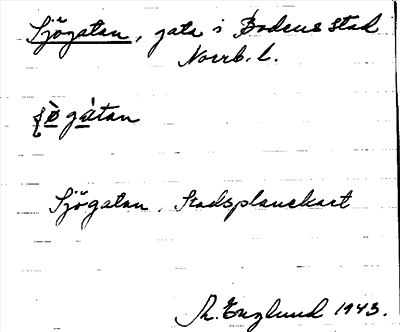 Sjögatan, gata i Bodens stad
Norrb. l.
gàtan
Sjögatan. Stadsplanekart
Englund 1943.